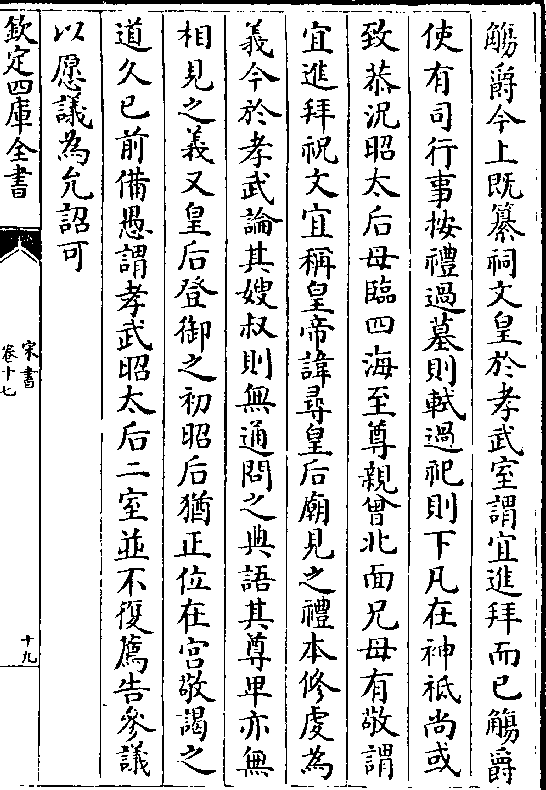 觴爵今上既纂祠文皇於孝武室謂宜進拜而已觴爵
使有司行事按禮過墓則軾過祀則下凡在神祇尚或
致恭況昭太后母臨四海至尊親曾北面兄母有敬謂
宜進拜祝文宜稱皇帝諱尋皇后廟見之禮本修虔為
義今於孝武論其嫂叔則無通問之典語其尊卑亦無
相見之義又皇后登御之初昭后猶正位在宮敬謁之
道久已前備愚謂孝武昭太后二室並不復薦告參議
以愿議為允詔可
欽定四庫全書
宋書
卷十七
十九